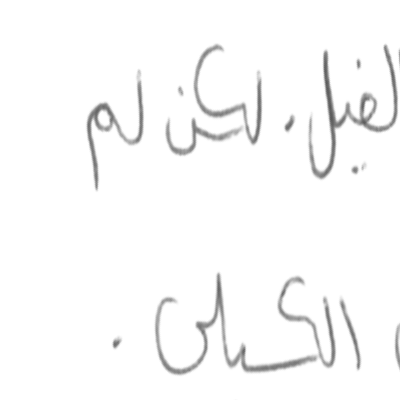 لفيل. لكن لم
الكسلى.